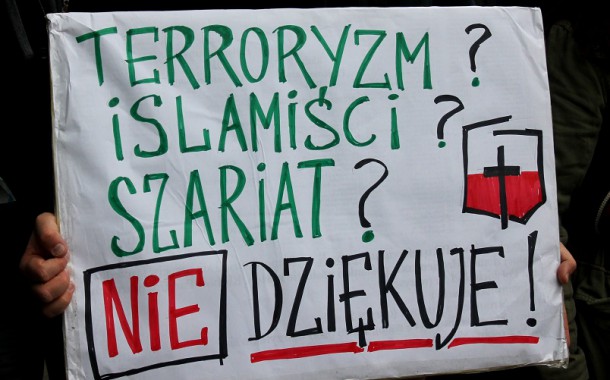 TERRORYZM ?
iSLAMiŚCi ?
SZARiAT ?
NiE DZiĘKUJE !